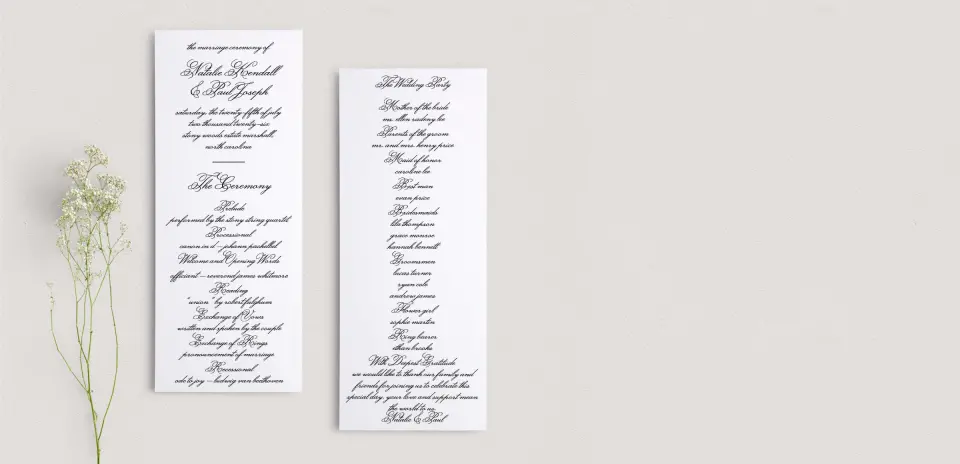 the marriage ceremony of
Natalie Kendall
& Paul Joseph
saturday, the twenty-fifth of july
two thousand twenty-six
stony woods estate marshall,
north carolina
The Ceremony
Prelude
performed by the stony string quartet
Processional
canon in d – johann pachelbel
Welcome and Opening Words
officiant – reverend james whitmore
Reading
"union" by robert fulghum
Exchange of Vows
written and spoken by the couple
Exchange of Rings
pronouncement of marriage
Recessional
ode to joy – ludwig van beethoven
The Wedding Party
Mother of the bride
ms. ellen lee
Parents of the groom
mr. and mrs. henry price
Maid of honor
caroline lee
Best man
evan price
Bridesmaids
lila thompson
grace monroe
hannah bennett
Groomsmen
lucas turner
ryan cole
andrew james
Flower girl
sophie martin
Ring bearer
ethan brooks
With Deepest Gratitude
we would like to thank our family and
friends for joining us to celebrate this
special day, your love and support mean
the world to us.
Natalie & Paul